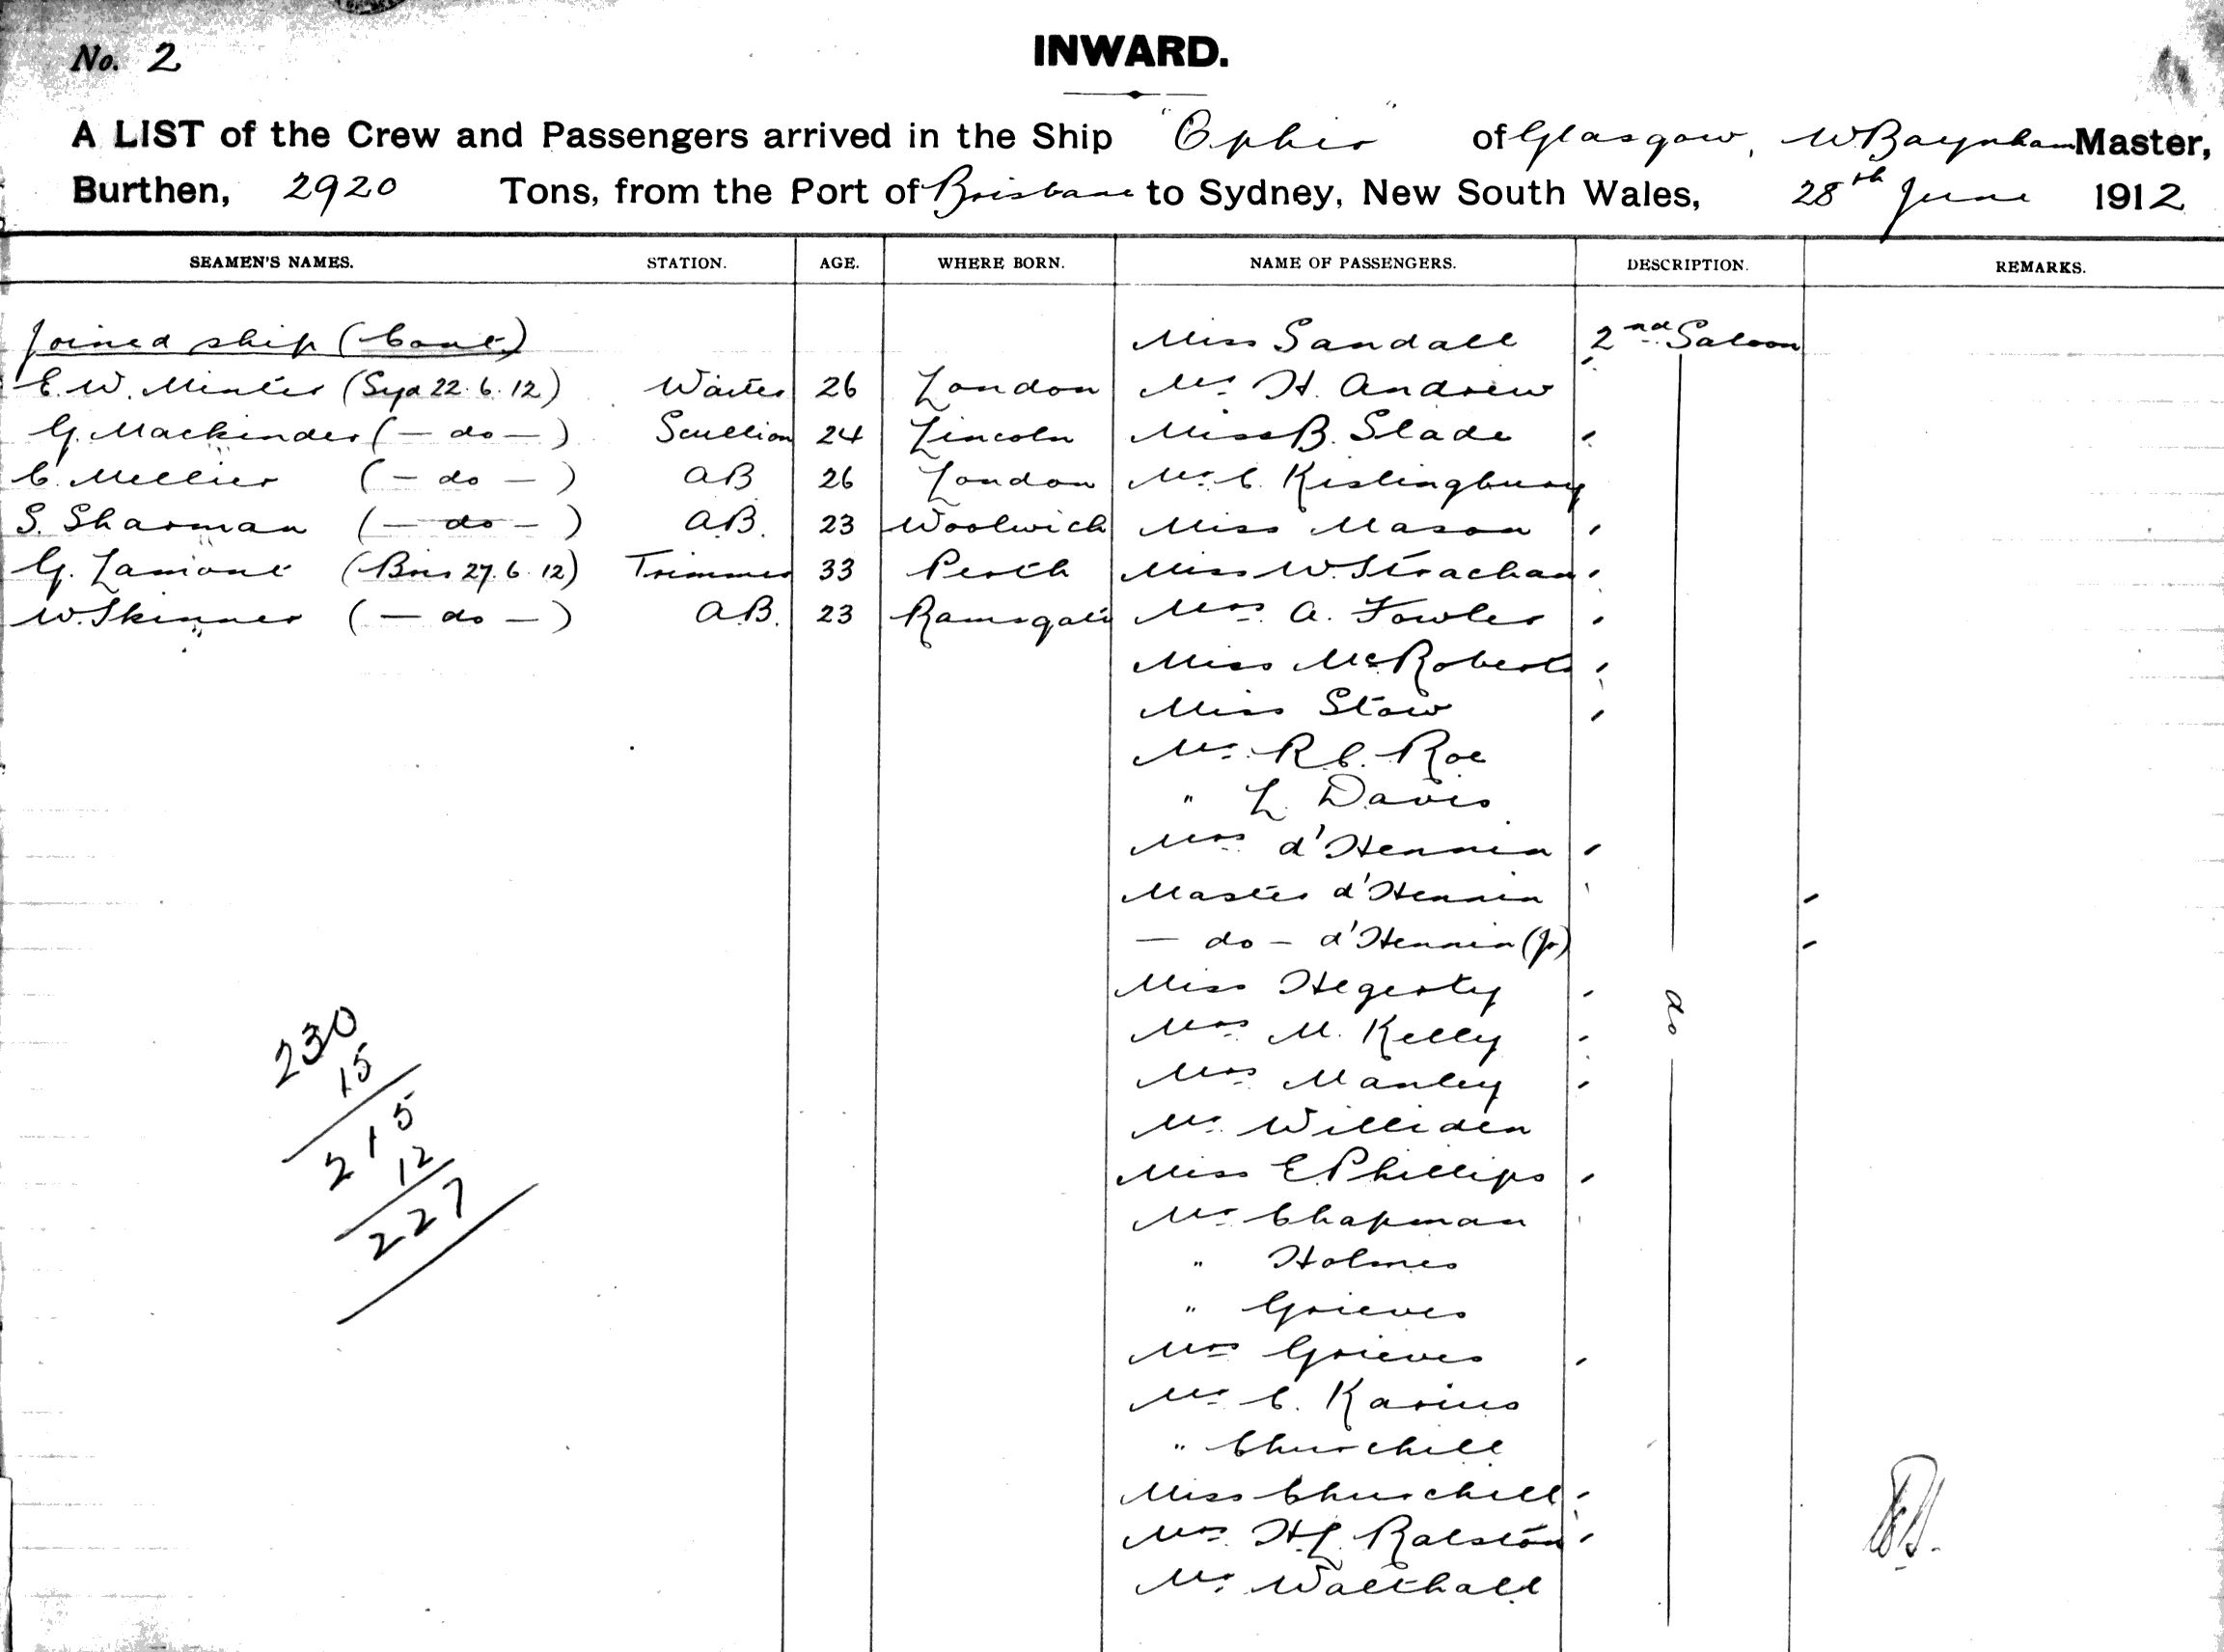 No. 2
INWARD.
A LIST of the Crew and Passengers arrived in the Ship "Ophir" of Glasgow, W. Baynham Master,
Burthen, 2920 Tons, from the Port of Brisbane to Sydney, New South Wales, 28th June 1912
SEAMEN'S NAMES. STATION. AGE. WHERE BORN. NAME OF PASSENGERS. DESCRIPTION. REMARKS.
Joined ship (Cont.) Miss Sandall 2nd Saloon
E. W. Minter (Syd 22.6.12) Waiter 26 London Mr. H. Andrew
G. Mackinder (— do —) Scullion 24 Lincoln Miss B. Slade
C. Mellier (— do —) AB 26 London Mr. C. Kislingbury
S. Sharman (— do —) A.B. 23 Woolwich Miss Mason
G. Lamont (Bris 27.6.12) Trimmer 33 Perth Miss W. Strachan
W. Skinner (— do —) A.B. 23 Ramsgate Mrs. A. Fowler
Miss McRoberts
Miss Stow
Mr. R. C. Roe
" L. Davis
Mrs d'Hennin
Master d'Hennin
— do — d'Hennin (Jr)
Miss Hegerty
do
Mrs M. Kelly
Mrs Manley
Mr. Williden
Miss E. Phillips
Mr. Chapman
" Holmes
" Grieves
Mrs Grieves
Mr. C. Karius
" Churchill
Miss Churchill
Mrs. H. L. Ralston
Mr. Walthall
230
15
215
12
227